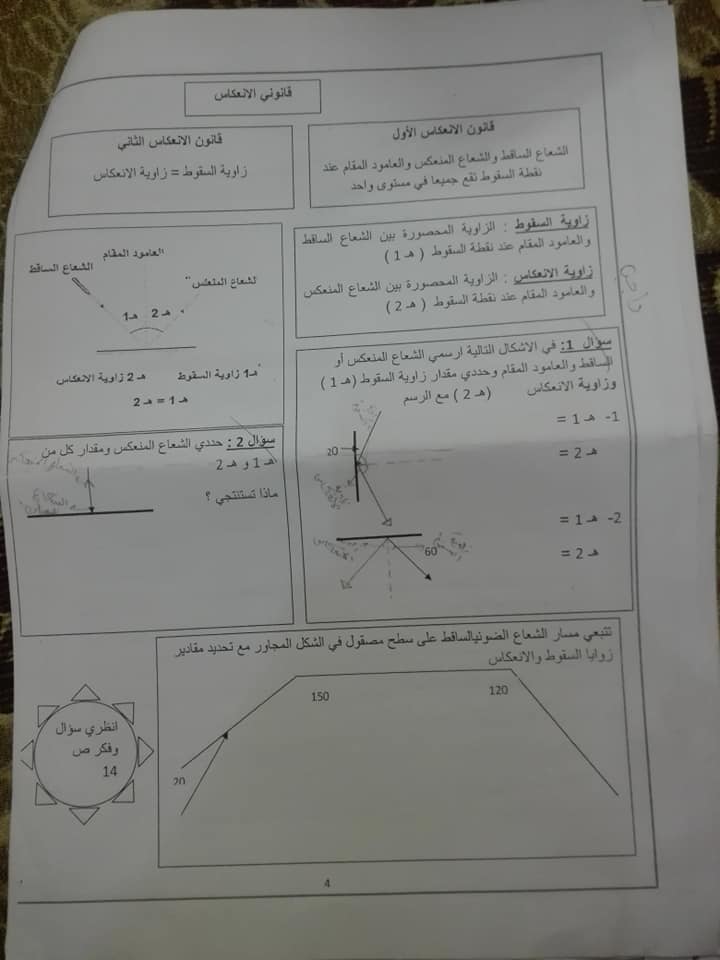 قانوني الانعكاس
قانون الانعكاس الأول
الشعاع الساقط والشعاع المنعكس والعامود المقام عند
نقطة السقوط تقع جميعا في مستوى واحد
قانون الانعكاس الثاني
زاوية السقوط = زاوية الانعكاس
زاوية السقوط : الزاوية المحصورة بين الشعاع الساقط
والعامود المقام عند نقطة السقوط ( هـ 1 )
زاوية الانعكاس : الزاوية المحصورة بين الشعاع المنعكس
والعامود المقام عند نقطة السقوط ( هـ 2 )
العامود المقام
الشعاع الساقط
لشعاع المنعس
هـ1 هـ 2
هـ1 زاوية السقوط هـ 2 زاوية الانعكاس
هـ 1 = هـ 2
سؤال 1: في الاشكال التالية ارسمي الشعاع المنعكس أو
الساقط والعامود المقام وحددي مقدار زاوية السقوط (هـ 1 )
وزاوية الانعكاس (هـ 2 ) مع الرسم
1- هـ 1 =
هـ 2 =
20
2- هـ 1 =
هـ 2 =
60
سؤال 2 : حددي الشعاع المنعكس ومقدار كل من
هـ 1 و هـ 2
ماذا تستنتجي ؟
تتبعي مسار الشعاع الضوئيالساقط على سطح مصقول في الشكل المجاور مع تحديد مقادير
زوايا السقوط والانعكاس
150
120
20
انظري سؤال
وفكر ص
14
4